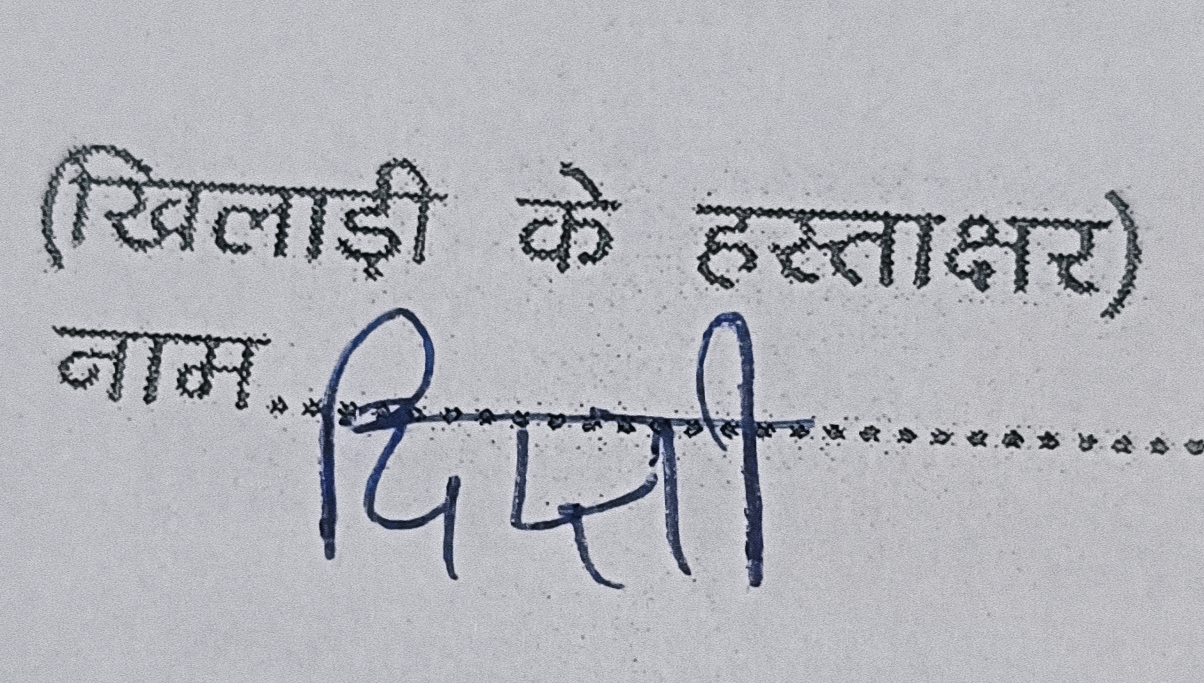 (खिलाड़ी के हस्ताक्षर)
नाम..दिप्ती...........